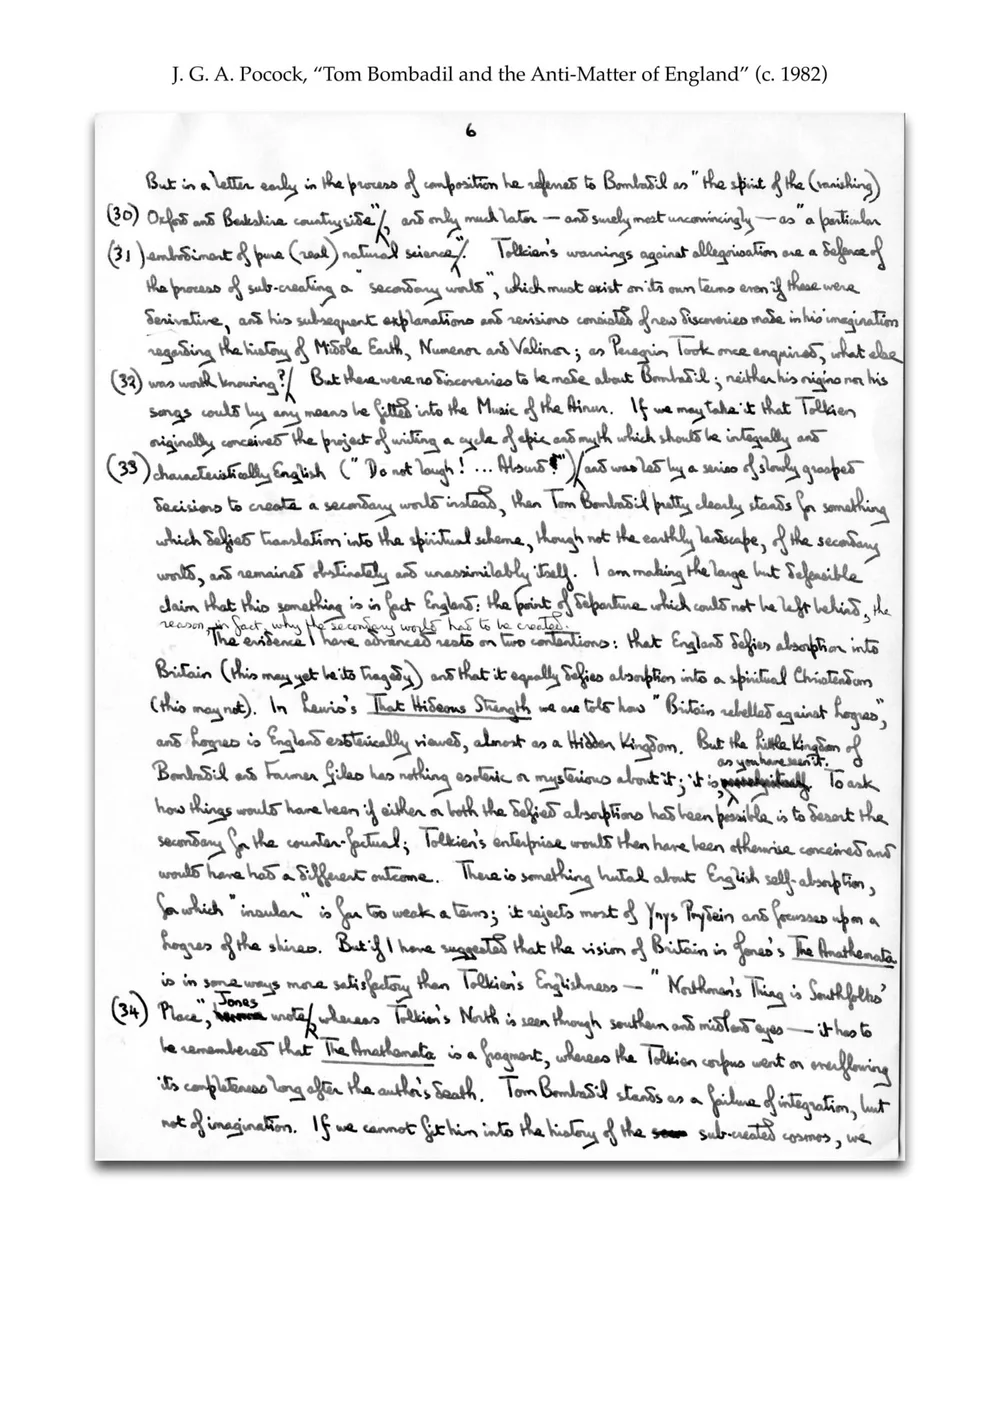 J. G. A. Pocock, “Tom Bombadil and the Anti-Matter of England” (c. 1982)
6
But in a letter early in the process of composition he referred to Bombadil as "the spirit of the (vanishing)
(30) Oxford and Berkshire countryside"/, and only much later — and surely most unconvincingly — as "a particular
(31) embodiment of pure (real) natural science"/. Tolkien's warnings against allegorisation are a defence of
the process of sub-creating a "secondary world", which must exist on its own terms even if these were
derivative, and his subsequent explanations and revisions consisted of new discoveries made in his imagination
regarding the history of Middle Earth, Numenor and Valinor; as Peregrin Took once enquired, what else
(32) was worth knowing?/ But there were no discoveries to be made about Bombadil; neither his origins nor his
songs could by any means be fitted into the Music of the Ainur. If we may take it that Tolkien
originally conceived the project of writing a cycle of epic and myth which should be integrally and
(33) characteristically English ("Do not laugh! ... Absurd!")/ and was led by a series of slowly grasped
decisions to create a secondary world instead, then Tom Bombadil pretty clearly stands for something
which defied translation into the spiritual scheme, though not the earthly landscape, of the secondary
world, and remained obstinately and unassimilably itself. I am making the large but defensible
claim that this something is in fact England: the point of departure which could not be left behind, the
reason, in fact, why the secondary world had to be created.
The evidence I have advanced rests on two contentions: that England defies absorption into
Britain (this may yet be its tragedy) and that it equally defies absorption into a spiritual Christendom
(this may not). In Lewis's That Hideous Strength we are told how "Britain rebelled against Logres",
and Logres is England esoterically viewed, almost as a Hidden Kingdom. But the Little Kingdom of
as you have seen it.
Bombadil and Farmer Giles has nothing esoteric or mysterious about it; it is, To ask
how things would have been if either or both the defied absorptions had been possible is to desert the
secondary for the counter-factual; Tolkien's enterprise would then have been otherwise conceived and
would have had a different outcome. There is something brutal about English self-absorption,
for which "insular" is far too weak a term; it rejects most of Ynys Prydein and focusses upon a
Logres of the shires. But if I have suggested that the vision of Britain in Jones's The Anathemata
is in some ways more satisfactory than Tolkien's Englishness — "Northmen's Thing is Southfolks'
(34) Place," Jones wrote/ whereas Tolkien's North is seen through southern and midland eyes — it has to
be remembered that The Anathemata is a fragment, whereas the Tolkien corpus went on overflowing
its completeness long after the author's death. Tom Bombadil stands as a failure of integration, but
not of imagination. If we cannot fit him into the history of the sub-created cosmos, we